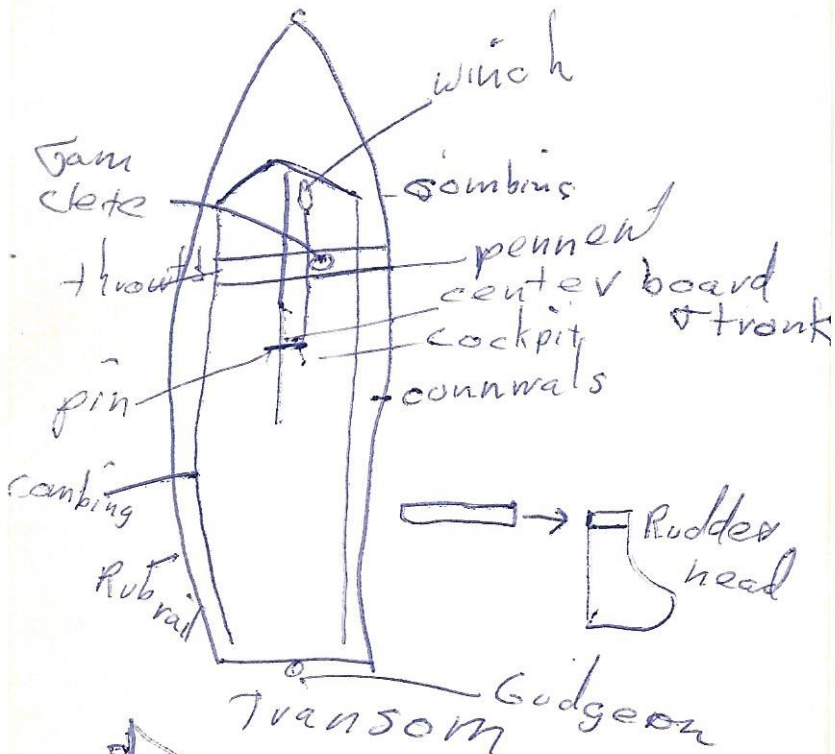 winch
Jam
clete
combins
pennent
center board
& tronk
cockpit
pin
connwals
combing
Rub
rail
Rudder
head
Gudgeon
Transom